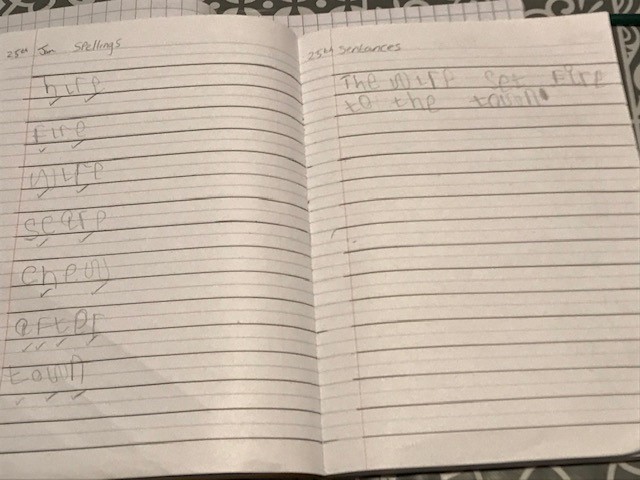 25th Jan Spellings
hire
Fire
wire
scare
chew
after
town
25th Sentances
The wire set Fire
to the town